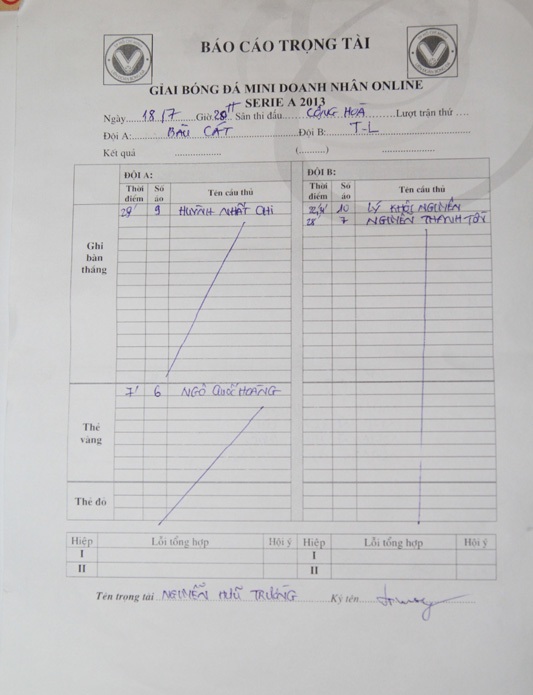 BÁO CÁO TRỌNG TÀI
GIẢI BÓNG ĐÁ MINI DOANH NHÂN ONLINE
SERIE A 2013
Ngày 18/7 Giờ Sân thi đấu CỘNG HOÀ Lượt trận thứ
Đội A: BÀU CÁT Đội B: T-L
Kết quả (............)
ĐỘI A: ĐỘI B:
Thời điểm Số áo Tên cầu thủ Thời điểm Số áo Tên cầu thủ
Ghi bàn thắng
29' 9 HUỲNH NHẤT CHI 10 LÝ KHÔI NGUYÊN
28' 7 NGUYỄN THANH TỚI
Thẻ vàng
7' 6 NGÔ QUỐC HOÀNG
Thẻ đỏ
Hiệp Lỗi tổng hợp Hội ý Hiệp Lỗi tổng hợp Hội ý
I I
II II
Tên trọng tài NGUYỄN HỮU TRƯỜNG Ký tên